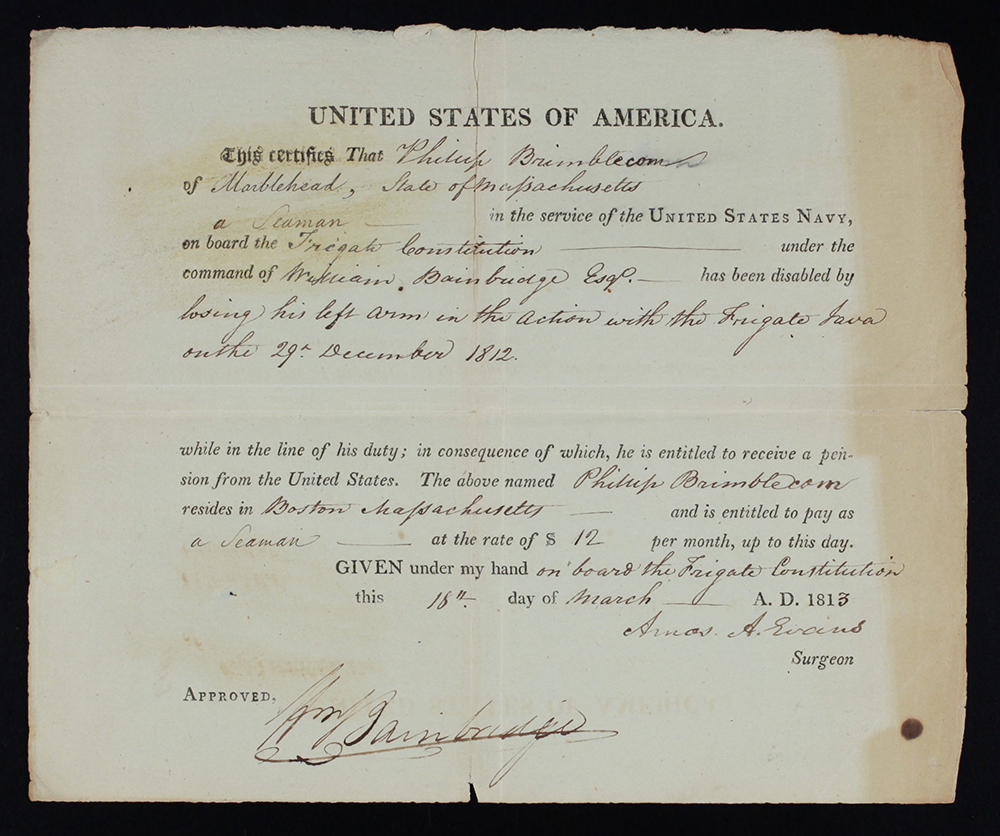 UNITED STATES OF AMERICA.
This certifies That Phillip Brimblecom
of Marblehead, State of Massachusetts
a Seaman in the service of the UNITED STATES NAVY,
on board the Frigate Constitution under the
command of William Bainbridge Esqr. has been disabled by
losing his left arm in the action with the Frigate Java
on the 29th December 1812.
while in the line of his duty; in consequence of which, he is entitled to receive a pen-
sion from the United States. The above named Phillip Brimblecom
resides in Boston Massachusetts and is entitled to pay as
a Seaman at the rate of $ 12 per month, up to this day.
GIVEN under my hand on board the Frigate Constitution
this 18th day of March A. D. 1813
Amos A. Evans
Surgeon
APPROVED,
Wm Bainbridge